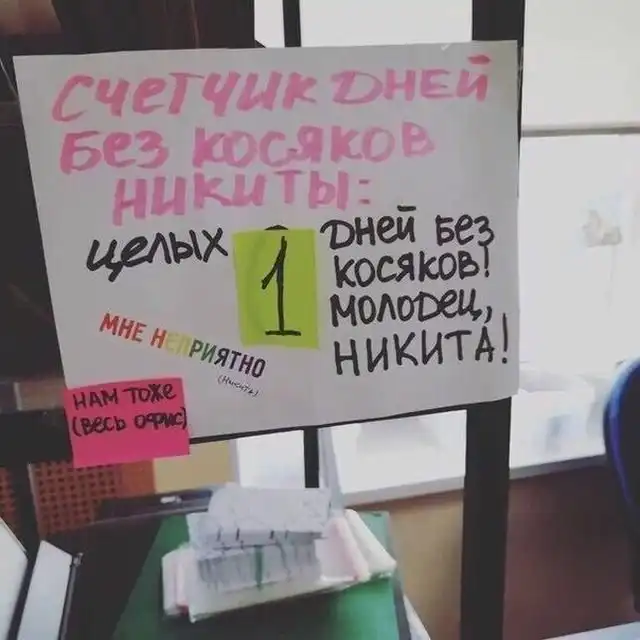 СЧЕТЧИК ДНЕЙ
БЕЗ КОСЯКОВ
НИКИТЫ:
ЦЕЛЫХ
1
ДНЕЙ БЕЗ
КОСЯКОВ!
МОЛОДЕЦ,
НИКИТА!
МНЕ НЕПРИЯТНО
(НИКИТА)
НАМ ТОЖЕ
(ВЕСЬ ОФИС)